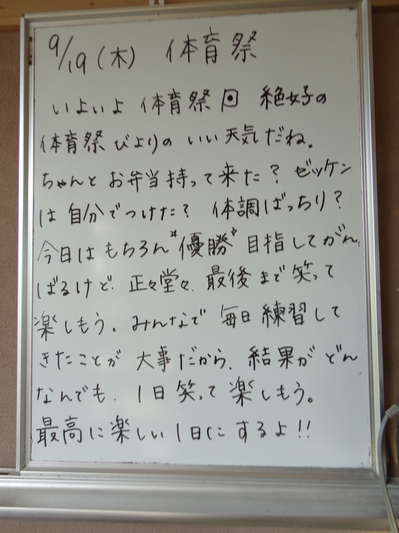 9/19(木) 体育祭
いよいよ 体育祭 絶好の
体育祭びよりの いい天気だね。
ちゃんと お弁当持って来た? ゼッケン
は 自分でつけた? 体調ばっちり?
今日は もちろん "優勝" 目指してがん
ばるけど. 正々堂々. 最後まで笑って
楽しもう。みんなで 毎日 練習して
きたことが 大事だから. 結果が どん
なんでも. 1日 笑って 楽しもう。
最高に楽しい 1日に するよ!!